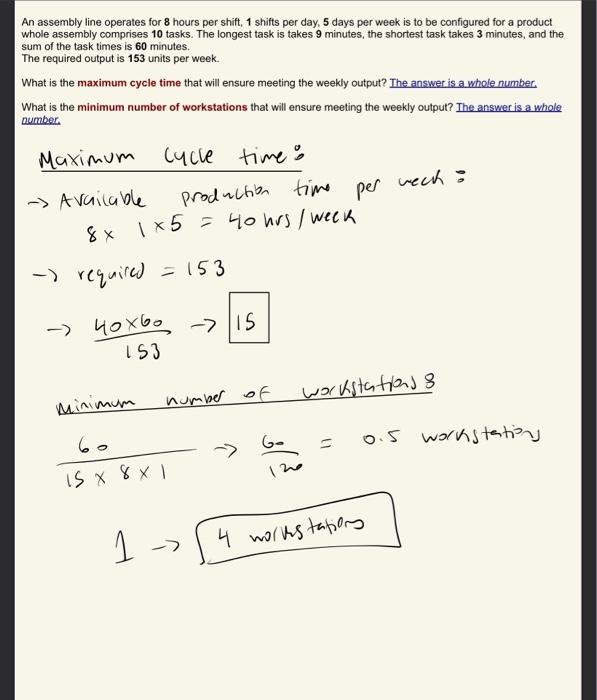 An assembly line operates for 8 hours per shift, 1 shifts per day, 5 days per week is to be configured for a product
whole assembly comprises 10 tasks. The longest task is takes 9 minutes, the shortest task takes 3 minutes, and the
sum of the task times is 60 minutes.
The required output is 153 units per week.
What is the maximum cycle time that will ensure meeting the weekly output? The answer is a whole number.
What is the minimum number of workstations that will ensure meeting the weekly output? The answer is a whole
number.
Maximum Cycle time:
-> Available production time per week:
8 x 1 x 5 = 40 hrs / week
-> required = 153
-> 40x60 -> 15
153
Minimum number of workstations:
60 -> 60 = 0.5 workstations
15 x 8 x 1 120
1 -> 4 workstations